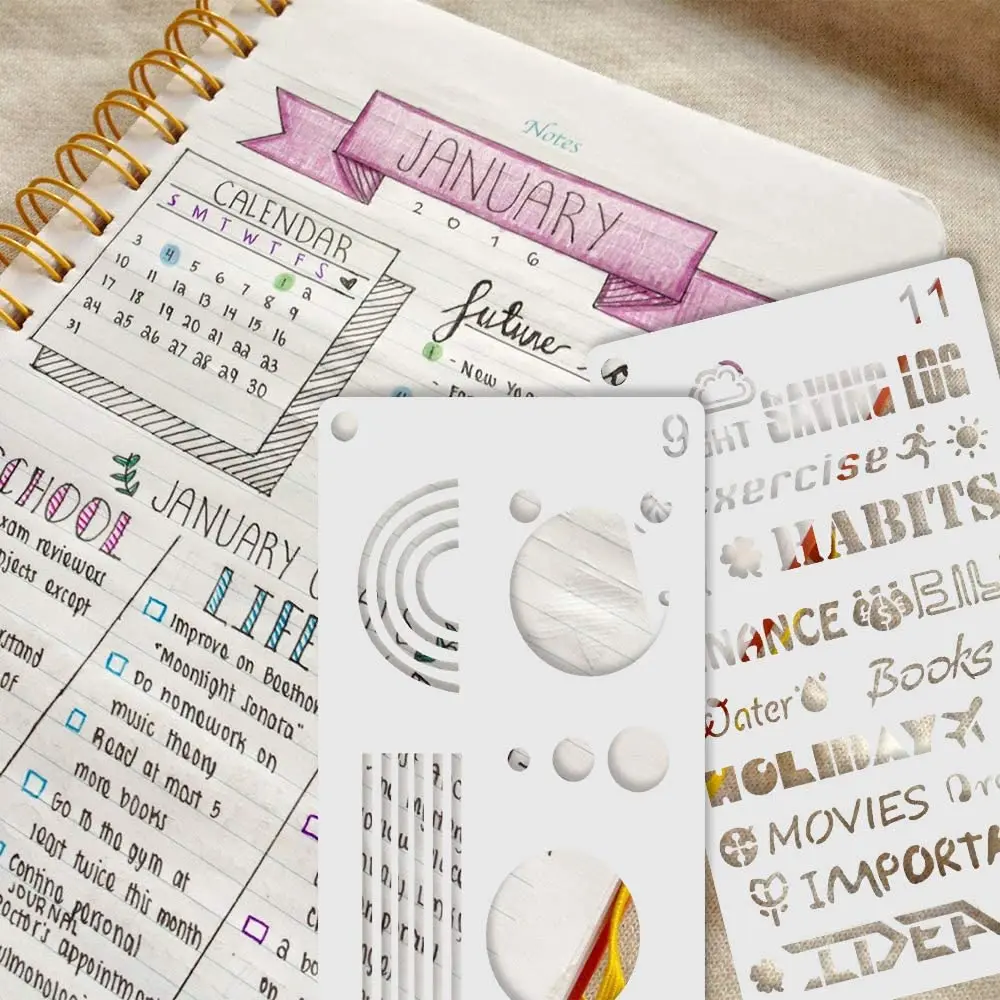 Notes
JANUARY
2016
CALENDAR
S M T W T F S
1 2
3 4 5 6 7 8 9
10 11 12 13 14 15 16
17 18 19 20 21 22 23
24 25 26 27 28 29 30
31
future
- New Yea
SCHOOL
exam reviewers
bjects except
stand
of
JANUARY
LIFE
Improve on Beethov
"Moonlight Sonata"
Do homework on
music theory
Read at mart 5
more books
Go to the gym at
least twice this month
Contine personal
JOURNAL
octor's appointment
ulmonolog
a bo
on
9
11
GHT SAVING LOG
Exercise
HABITS
NANCE BIL
Water Books
HOLIDAY
MOVIES
IMPORTA
IDEA